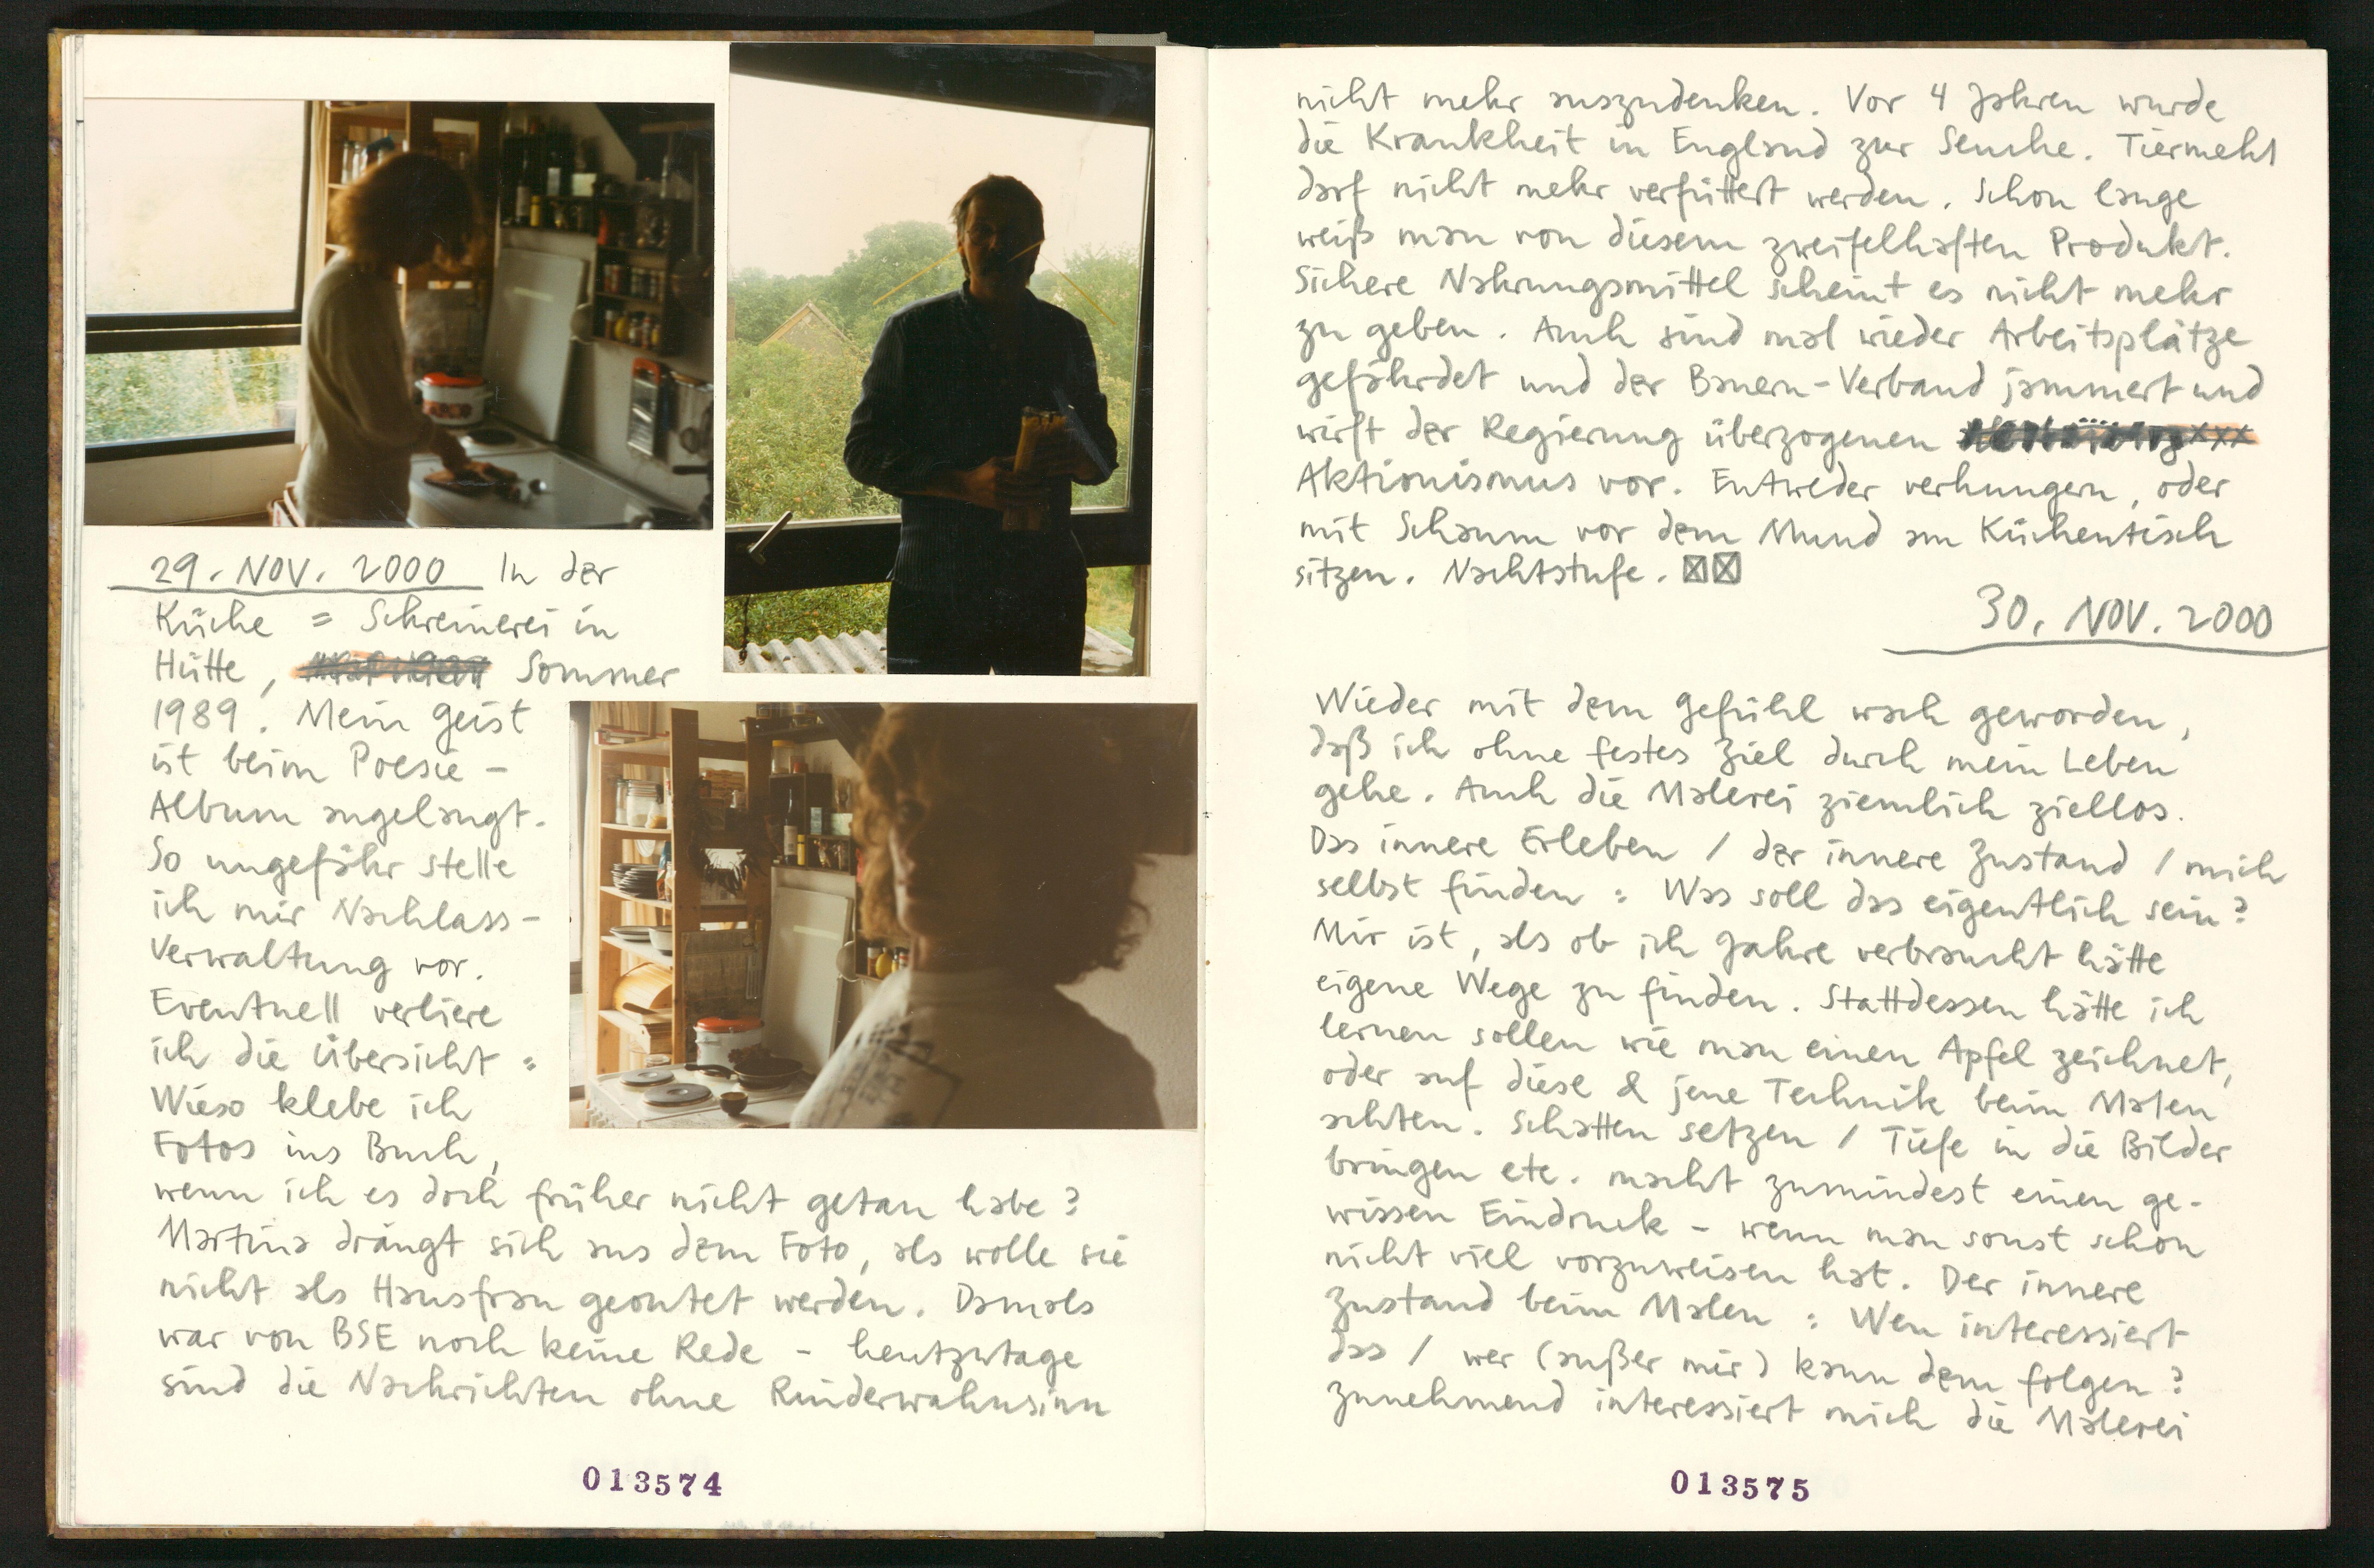 29. NOV. 2000 In der
Küche = Schreinerei in
Hütte, Sommer
1989. Mein Geist
ist beim Poesie-
Album angelangt.
So ungefähr stelle
ich mir Nachlass-
Verwaltung vor.
Eventuell verliere
ich die Übersicht:
Wieso klebe ich
Fotos ins Buch,
wenn ich es doch früher nicht getan habe?
Martina drängt sich aus dem Foto, als wolle sie
nicht als Hausfrau geoutet werden. Damals
war von BSE noch keine Rede - heutzutage
sind die Nachrichten ohne Rinderwahnsinn
013574
nicht mehr auszudenken. Vor 4 Jahren wurde
die Krankheit in England zur Seuche. Tiermehl
darf nicht mehr verfüttert werden. Schon lange
weiß man von diesem zweifelhaften Produkt.
Sichere Nahrungsmittel scheint es nicht mehr
zu geben. Auch sind mal wieder Arbeitsplätze
gefährdet und der Bauern-Verband jammert und
wirft der Regierung überzogenen
Aktionismus vor. Entweder verhungern, oder
mit Schaum vor dem Mund am Küchentisch
sitzen. Nachtstufe. ☒☒
30. NOV. 2000
Wieder mit dem Gefühl wach geworden,
daß ich ohne festes Ziel durch mein Leben
gehe. Auch die Malerei ziemlich ziellos.
Das innere Erleben / der innere Zustand / mich
selbst finden: Was soll das eigentlich sein?
Mir ist, als ob ich Jahre verbraucht hätte
eigene Wege zu finden. Stattdessen hätte ich
lernen sollen wie man einen Apfel zeichnet,
oder auf diese & jene Technik beim Malen
achten. Schatten setzen / Tiefe in die Bilder
bringen etc. macht zumindest einen ge-
wissen Eindruck - wenn man sonst schon
nicht viel vorzuweisen hat. Der innere
Zustand beim Malen: Wen interessiert
das / wer (außer mir) kann dem folgen?
Zunehmend interessiert mich die Malerei
013575